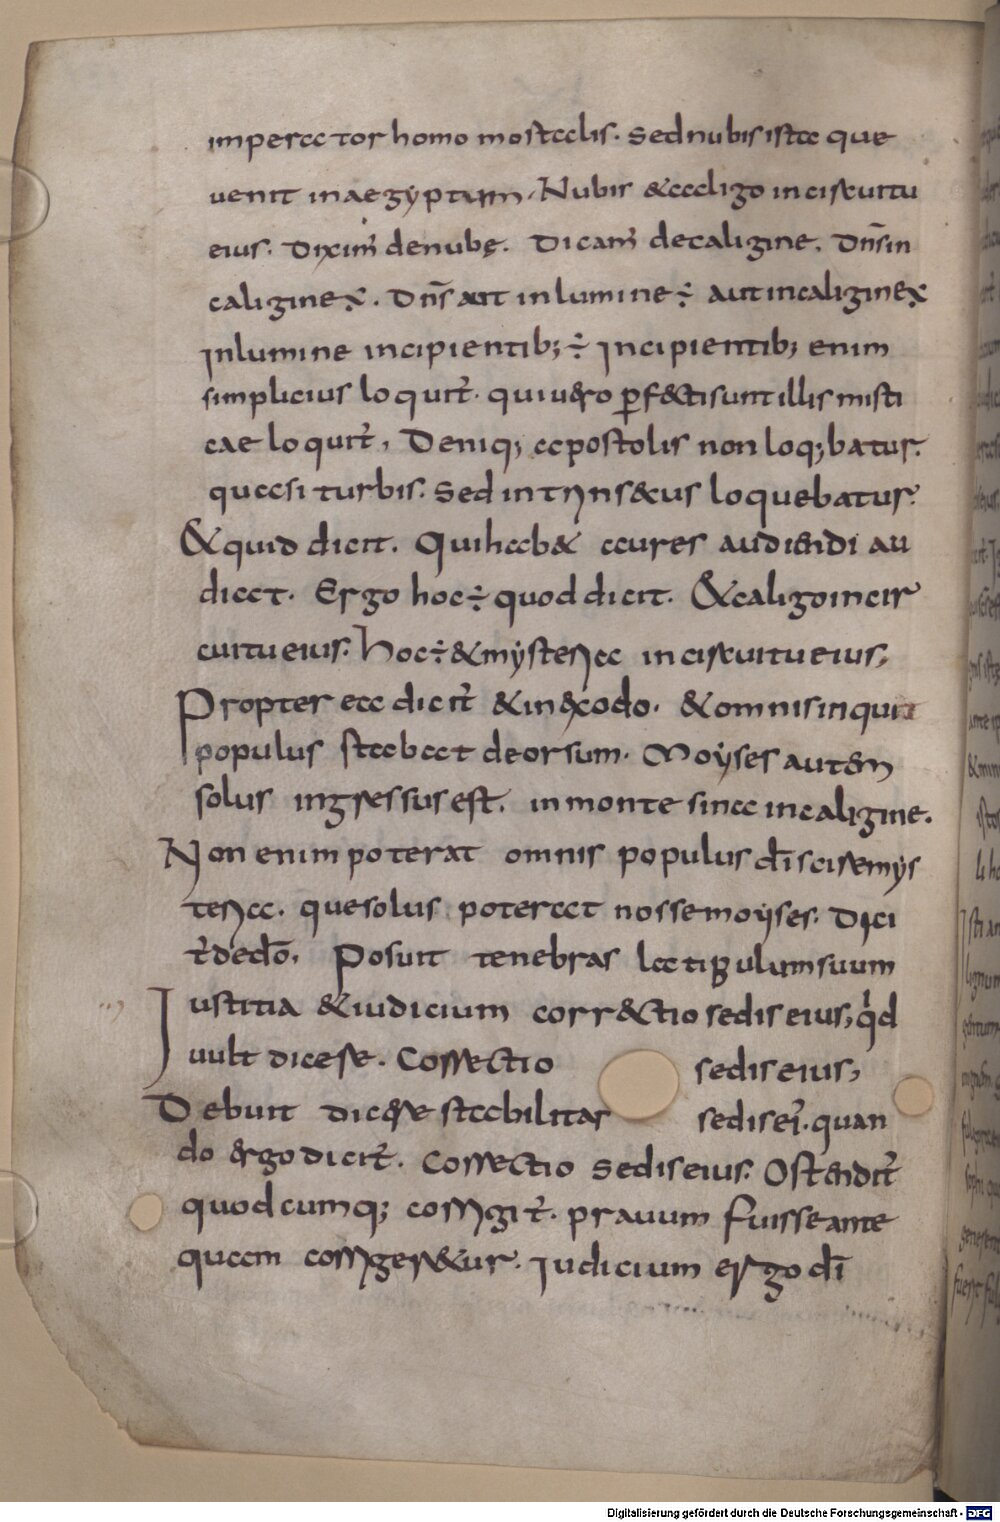 imperator homo mortalis. Sed nubis ista que
uenit in aegyptum. Nubis & caligo in circuitu
eius. Diximꝰ de nubę. Dicamꝰ de caligine. Dn̄s in
caligine x̄. Dn̄s aut in lumine ÷ aut in caligine x̄
In lumine incipientib; ÷ Incipientib; enim
simplicius loquit̄. qui uero ꝑf&ti sunt illis misti
cae loquit̄. Deniq; apostolis non loq;batur.
quasi turbis. Sed in trins&us loquebatur.
& quid dicit. Qui hab& aures audiendi au
diat. Ergo hoc ÷ quod dicit. & caligo in cir
cuitu eius. Hoc ÷ & mysteria in circuitu eius;
Propterea dicit̄ & in exodo. & omnis inquit
populus stabat deorsum. Moyses autem
solus ingressus est. in monte sina in caligine.
Non enim poterat omnis populus dī scire mys
teria. que solus poterat nosse moyses. Dici
t̄ de dō. Posuit tenebras latipulum suum
Iustitia & iudicium corr&tio sedis eius; qd̄
uult dicere. Correctio sedis eius;
Debuit dicere stabilitas sedis ei. quan
do ergo dicit̄. Correctio sedis eius. Ostendit̄
quod cumq; corrigit̄. prauum fuisse ante
quam corriger&ur. Iudicium ergo dī
Digitalisierung gefördert durch die Deutsche Forschungsgemeinschaft - DFG